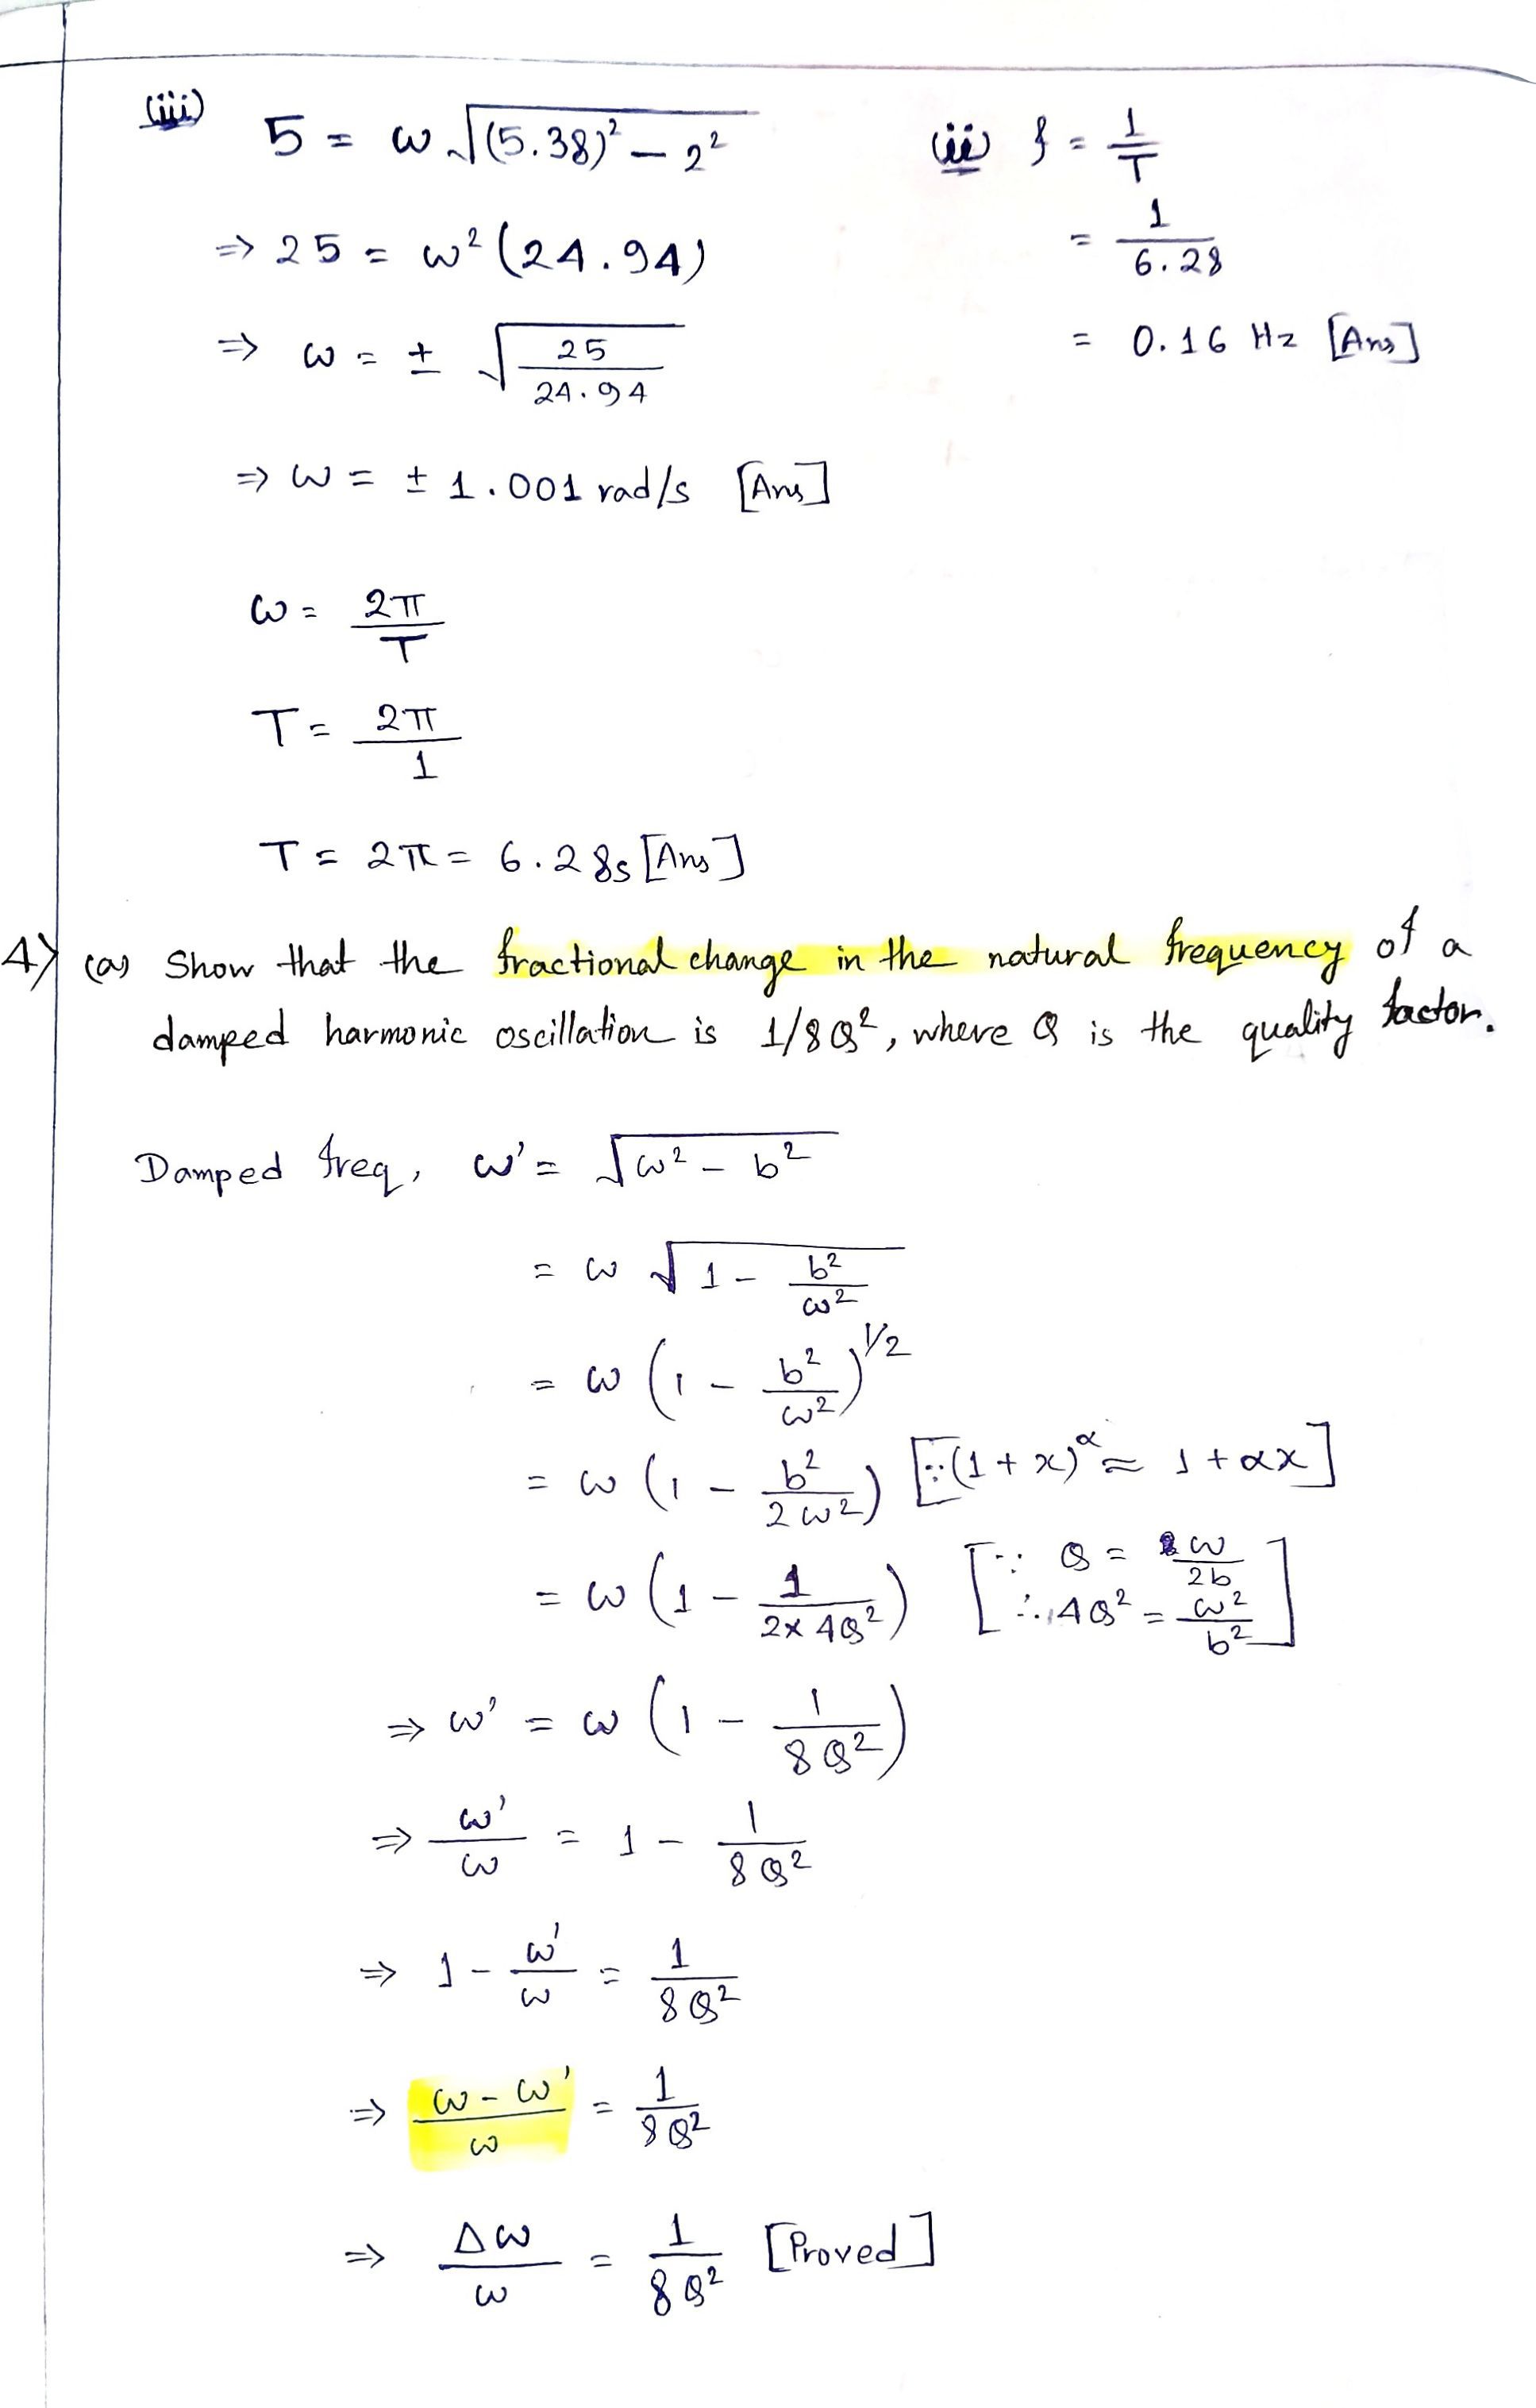 (iii)
5 = ω √(5.38)² – 2²
⇒ 25 = ω² (24.94)
⇒ ω = ± √25/24.94
⇒ ω = ± 1.001 rad/s [Ans]
ω = 2π/T
T = 2π/1
T = 2π = 6.28s [Ans]
(ii) f = 1/T
= 1/6.28
= 0.16 Hz [Ans]
4) (a) Show that the fractional change in the natural frequency of a
damped harmonic oscillation is 1/8Q², where Q is the quality factor.
Damped freq, ω' = √ω² – b²
= ω √1 – b²/ω²
= ω (1 – b²/ω²)^1/2
= ω (1 – b²/2ω²) [∵ (1 + x)^α ≈ 1 + αx]
= ω (1 – 1/2×4Q²) [∵ Q = ω/2b ∴ 4Q² = ω²/b²]
⇒ ω' = ω (1 – 1/8Q²)
⇒ ω'/ω = 1 – 1/8Q²
⇒ 1 – ω'/ω = 1/8Q²
⇒ ω – ω'/ω = 1/8Q²
⇒ Δω/ω = 1/8Q² [Proved]